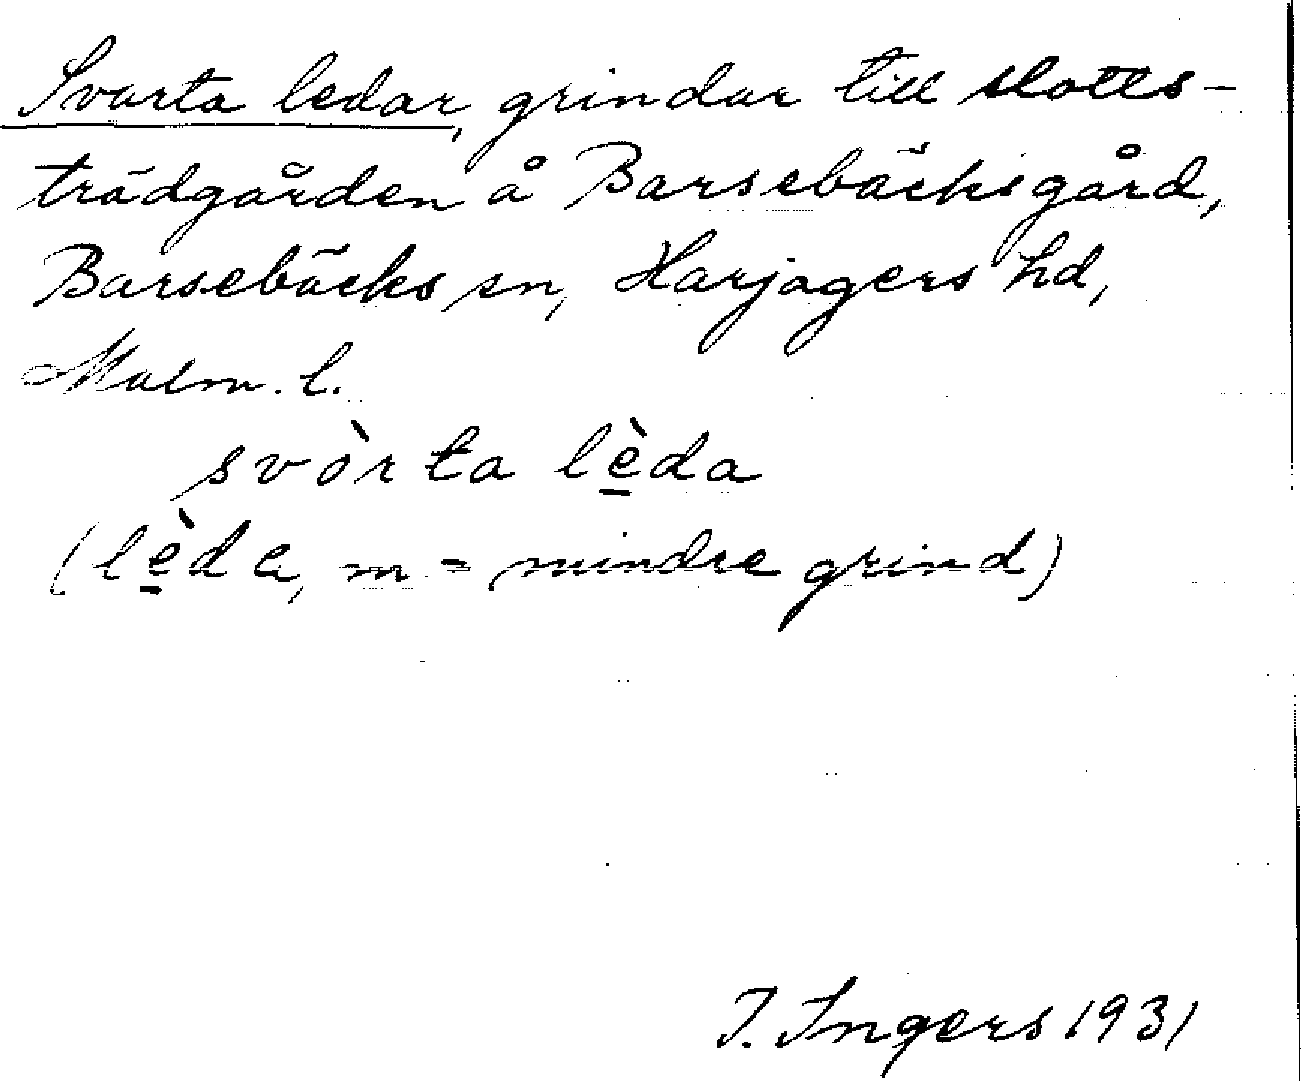 Svarta ledar, grindar till slotts-
trädgården å Barsebäcksgård,
Barsebäcks sn, Harjagers hd,
Malm. l.
svòrta lè̱da
(lè̱da, m = mindre grind)
I. Ingers 1931